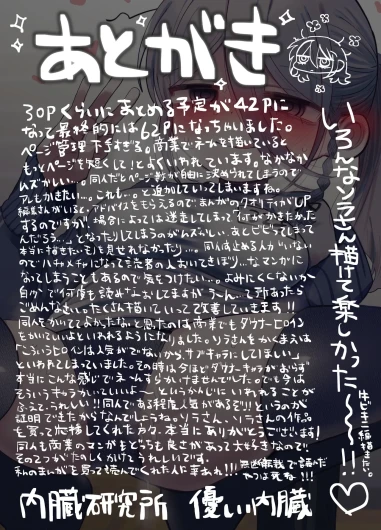 あとがき
30Pくらいにまとめる予定が42Pに
なって最終的には62Pになっちゃいました。
ページ管理下手すぎる。商業でネームを描いていると
もっとページを短くして!とよくいわれています。なかなか
ムズかしい…。同人だとページ数が自由に決められてしまうので
アレもかきたい…。これも…。と追加していってしまいますね。
編集さんがいると、アドバイスをもらえるので まんがのクオリティがUP
するのですが 場合によっては迷走してしまって「何がかきたかった
んだろう…」となったりしてしまうのがムズかしい…。
本当に描きたいモノを見せれなかったり…。同人は止める人がいない
のでハチャメチャになって読者の人おいてきぼり…なマンガに
なってしまうこともあるので気をつけたい…。よみにくくないか
自分で何度も読み直しおしてますが うーん…て所あったら
ごめんなさい。たくさん描いていって改善していきます!!
同人をかいててよかったなと思ったのは商業でもダウナーヒロイン
をかいてほしいといわれるようになりました。ソラさんをかくまえは
「こういうヒロインは人気がでないから、サブキャラにしてほしい」
といわれてしまっていました。
本当にこんな感じでネームすらかけませんでした。でも今は
そういうキャラかいてしいよーというかんじにいわれることが
ふえてうれしい!!同人である程度人気があるぞ!!というのが
証明できたからなんでしょうね。ソラさん、ソラさんの作品
を買って応援してくれた方々、本当にありがとうございます!
同人も商業のマンガもどちらも良さがあって大好きなので
そのコつがたのしくかけてうれしいです。
私のまんがを買って読んでくれた人に幸あれ!!! 無断転載で読んだ
やつは死ね!!!
内臓研究所 優しい内臓
いろんなソラさん描けて楽しかった〜〜!!♡